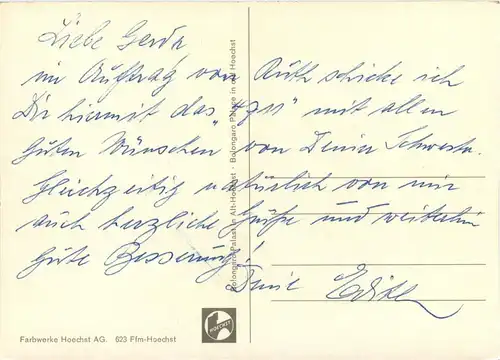 Liebe Gerda,
im Auftrag von Ruth schicke ich
Dir hiermit das "4711" mit allen
guten Wünschen von Deiner Schwester.
Gleichzeitig natürlich von mir
auch herzliche Grüße und weiterhin
gute Besserung!
Deine Edith
Bolongaro-Palast in Alt-Hoechst - Bolongaro Palace in old Hoechst
HOECHST
Farbwerke Hoechst AG. 623 Ffm-Hoechst